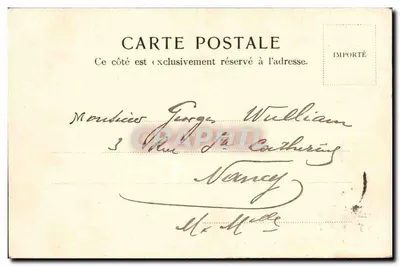 CARTE POSTALE
Ce côté est exclusivement réservé à l'adresse.
IMPORTÉ
Monsieur Georges Wulliam
3 Rue Ste Catherine
Nancy
M & Mlle